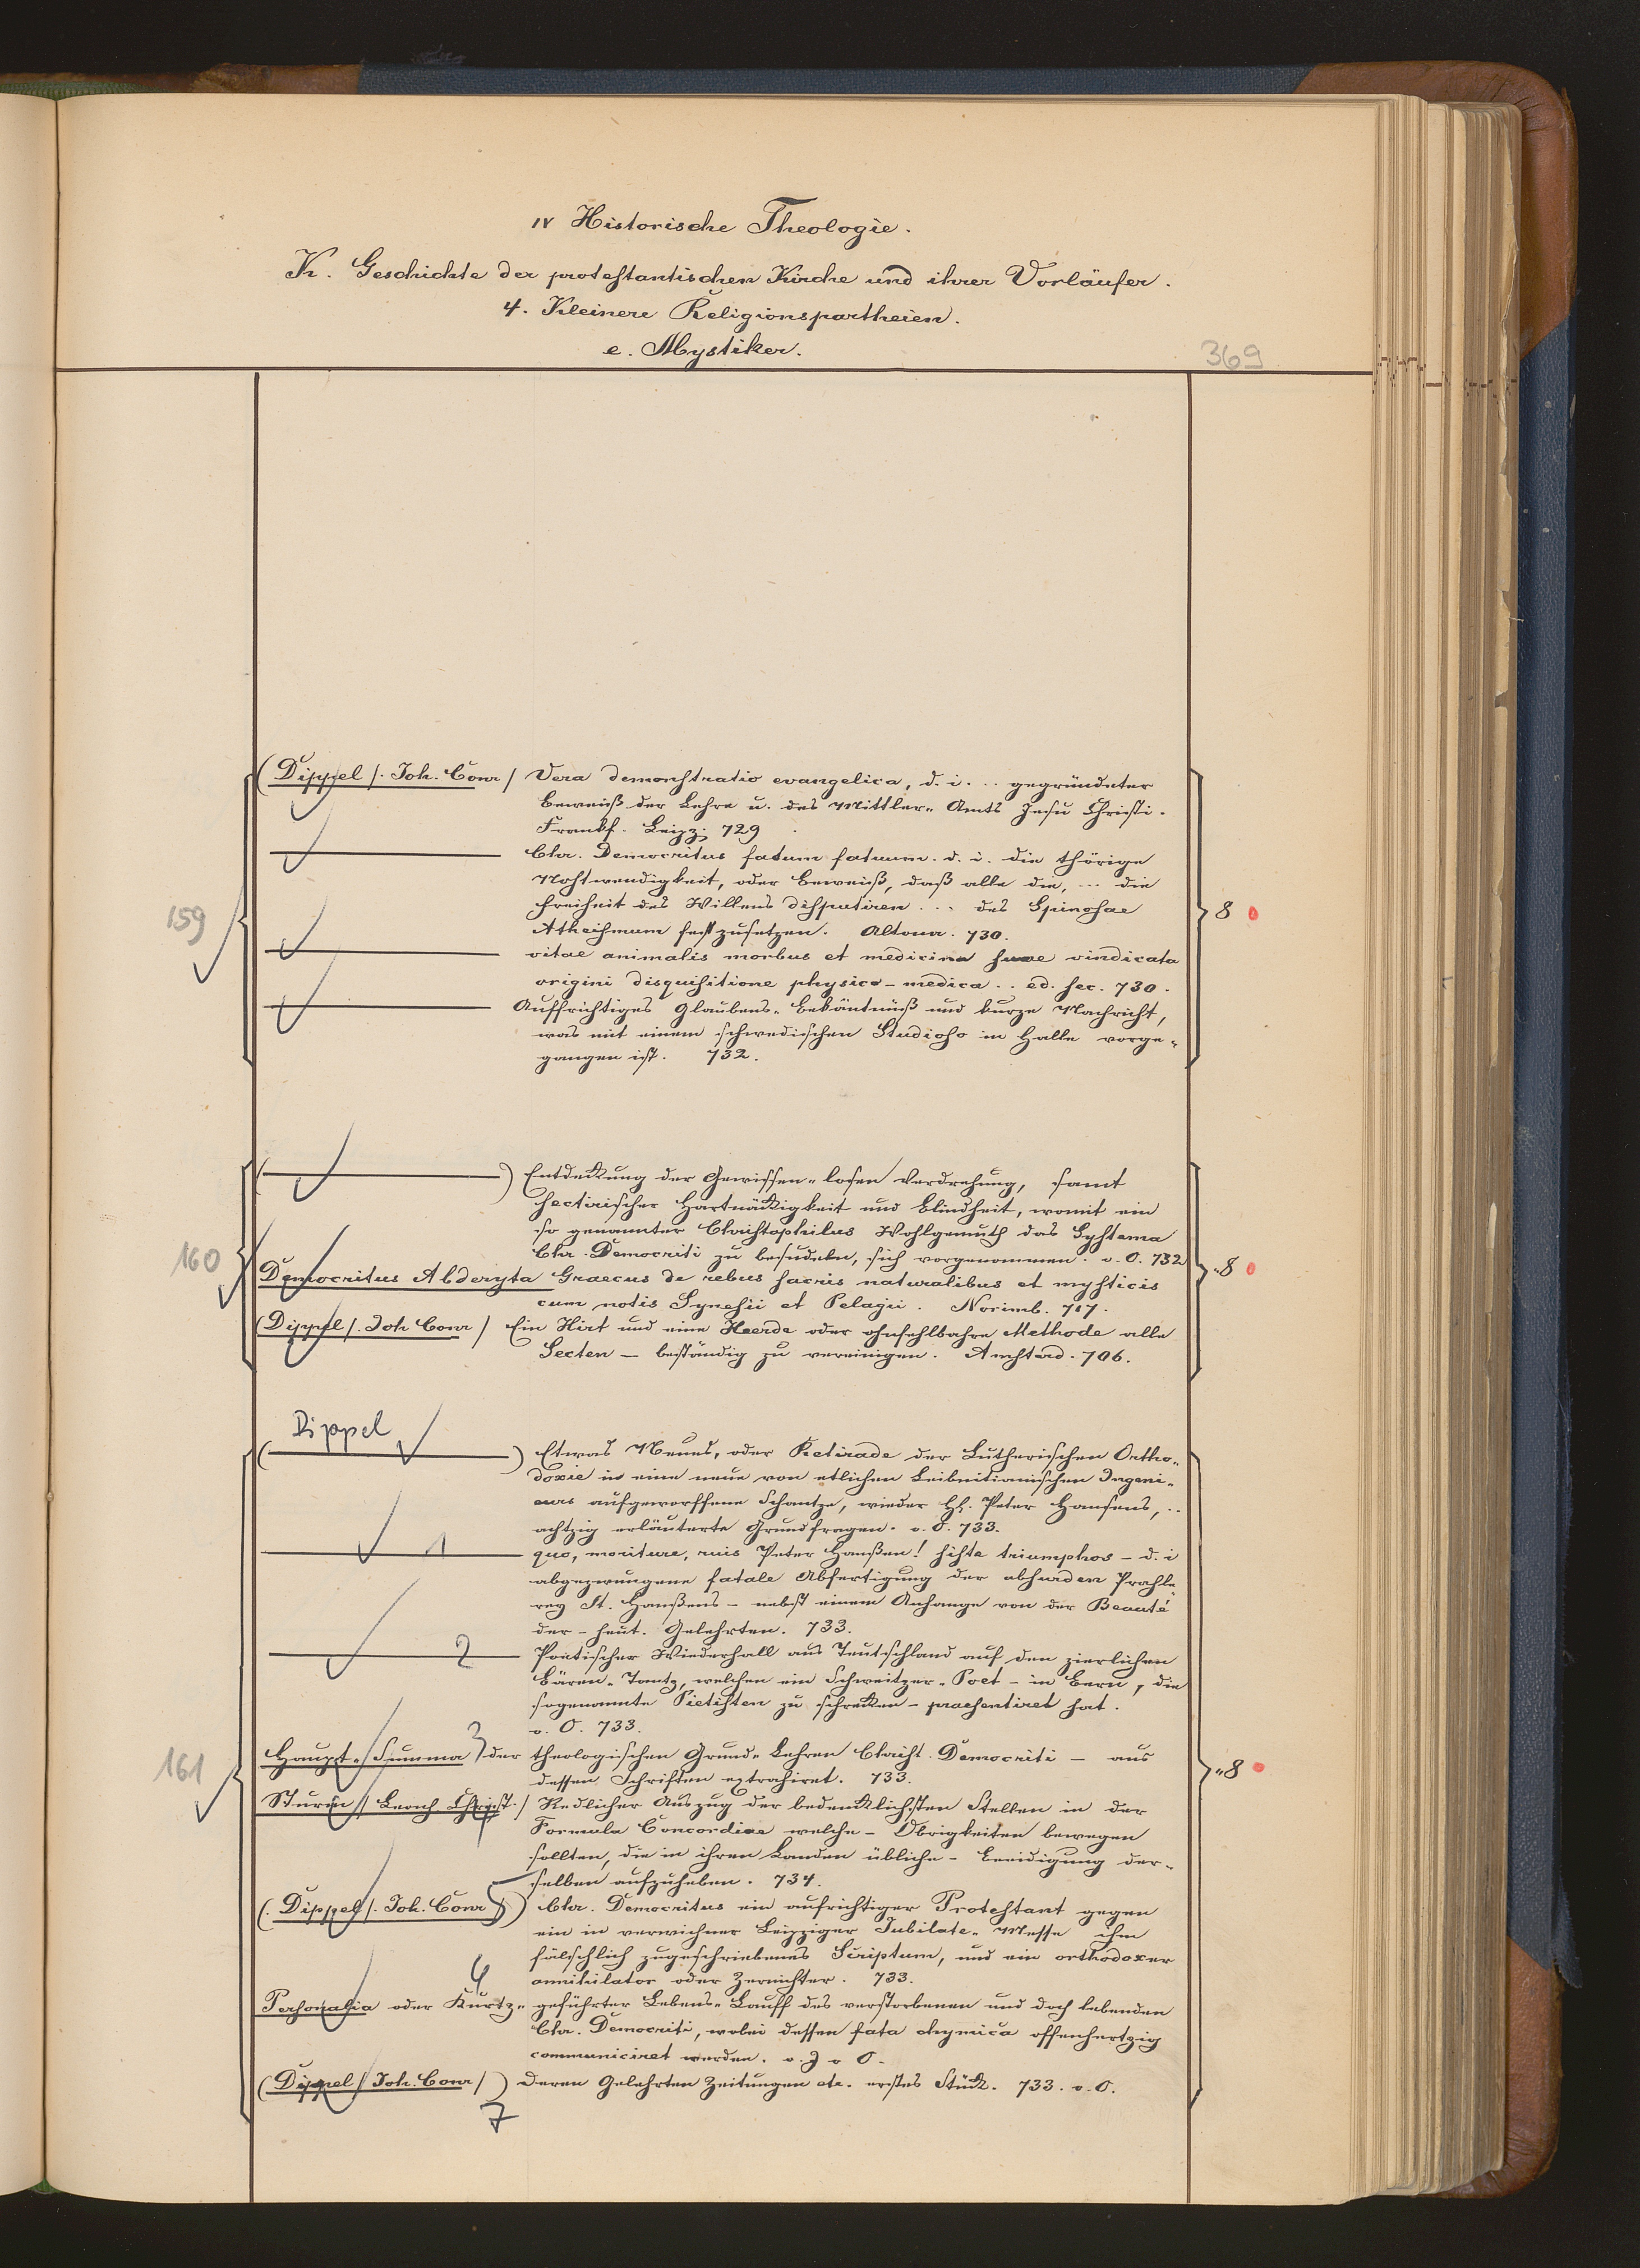 IV Historische Theologie.
K. Geschichte der protestantischen Kirche und ihrer Vorläufer.
4. Kleinere Religionspartheien.
e. Mystiker.
369
(Dippel /. Joh. Conr / Vera demonstratio evangelica, d. i. .. gegründeter
Beweiß der Lehre u. des Mittler-Amts Jesu Christi.
Frankf. Leipz. 729
Chr. Democritus fatum fatuum. d. i. die thörige
Nohtwendigkeit, oder Beweiß, daß alle die, ... die
Freiheit des Willens disputiren ... des Spinosae
159
8
Atheismum fest zusetzen. Altona. 730.
vitae animalis morbus et medicina suae vindicata
origini disquisitione physico-medica .. ed. sec. 730.
Auffrichtiges Glaubens-Bekäntnüß und kurze Nachricht,
was mit einem schwedischen Studioso in Halle vorge-
gangen ist. 732.
( ) Entdeckung der Gewissen-losen Verdrehung, samt
sectirischer Hartnäckigkeit und Blindheit, womit ein
so genannter Christophilus Wohlgemuth das Systema
160
Chr. Democriti zu besudeln, sich vorgenommen. o. O. 732
8
Democritus Abderyta Graecus de rebus sacris naturalibus et mysticis
cum notis Synesii et Pelagii. Norimb. 717.
(Dippel /. Joh Conr / Ein Hirt und eine Heerde oder ohnfehlbahre Methode alle
Secten – beständig zu vereinigen. Amsterd. 706.
Dippel
( ) Etwas Neues, oder Retirade der Lutherischen Ortho-
doxie in eine neue von etlichen Leibnitianischen Ingeni-
eurs aufgeworffene Schantze, wieder H. Peter Hansens, ..
achtzig erläuterte Grundfragen. o. O. 733.
1 quo, moriture, ruis Peter Hanßen! siste triumphos – d. i
abgezwungene fatale Abfertigung der absurden Prahle-
rey St. Hanßens – nebst einem Anhange von der Beauté
der – heut. Gelehrten. 733.
2 Poetischer Wiederhall aus Teutschland auf den zierlichen
Bären-Tantz, welchen ein Schweitzer-Poet – in Bern, die
sogenannte Pietisten zu schrecken – praesentiret hat.
o. O. 733.
161
Haupt-Summa 3 der theologischen Grund-Lehren Christ. Democriti – aus
8
dessen Schriften extrahiret. 733.
Sturm / Leonh. Christ. / Redlicher Auszug der bedencklichsten Stellen in der
4
Formula Concordiae welche – Obrigkeiten bewegen
sollten, die in ihren Landen übliche – Beeidigung der-
selben aufzuheben. 734.
(. Dippel /. Joh. Conr 5 ) Chr. Democritus ein aufrichtiger Protestant gegen
ein in verwichner Leipziger Jubilate-Messe ihm
fälschlich zugeschriebenes Scriptum, und ein orthodoxer
annihilator oder Zernichter. 733.
6
Personalia oder Kurtz-geführter Lebens-Lauff des verstorbenen und doch lebenden
Chr. Democriti, wobei dessen fata chymica offenhertzig
communiciret werden. o. J o O.
(Dippel / Joh. Conr /) Deren Gelehrten Zeitungen etc. erstes Stück. 733. o. O.
7